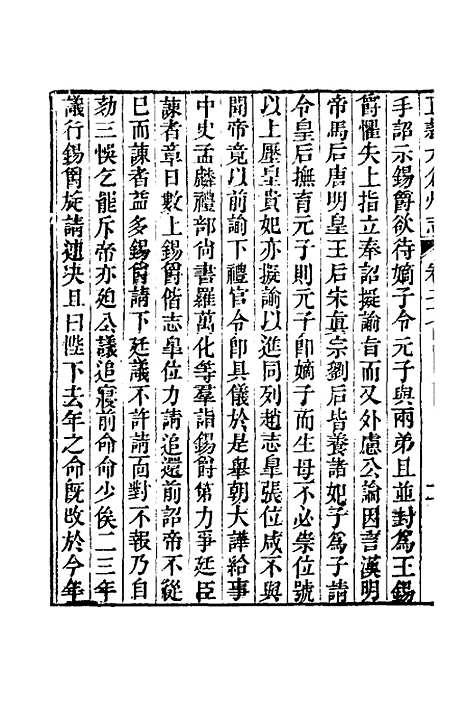 直隸太倉州志 卷二十七
手詔示錫爵欲待嫡子令元子與兩弟且並封爲王錫
爵懼失上指立奉詔擬諭旨而又外慮公論因言漢明
帝馬后唐明皇王后宋眞宗劉后皆養諸妃子爲子請
令皇后撫育元子則元子卽嫡子而生母不必崇位號
以上壓皇貴妃亦擬諭以進同列趙志皐張位咸不與
聞帝竟以前諭下禮官令卽具儀於是舉朝大譁給事
中史孟麟禮部尚書羅萬化等羣詣錫爵第力爭廷臣
諫者章日數上錫爵偕志皐位力請追還前詔帝不從
巳而諫者益多錫爵請下廷議不許請面對不報乃自
劾三悞乞罷斥帝亦廹公議追寢前命命少俟二三年
議行錫爵旋請速决且曰陛下去年之命旣改於今年